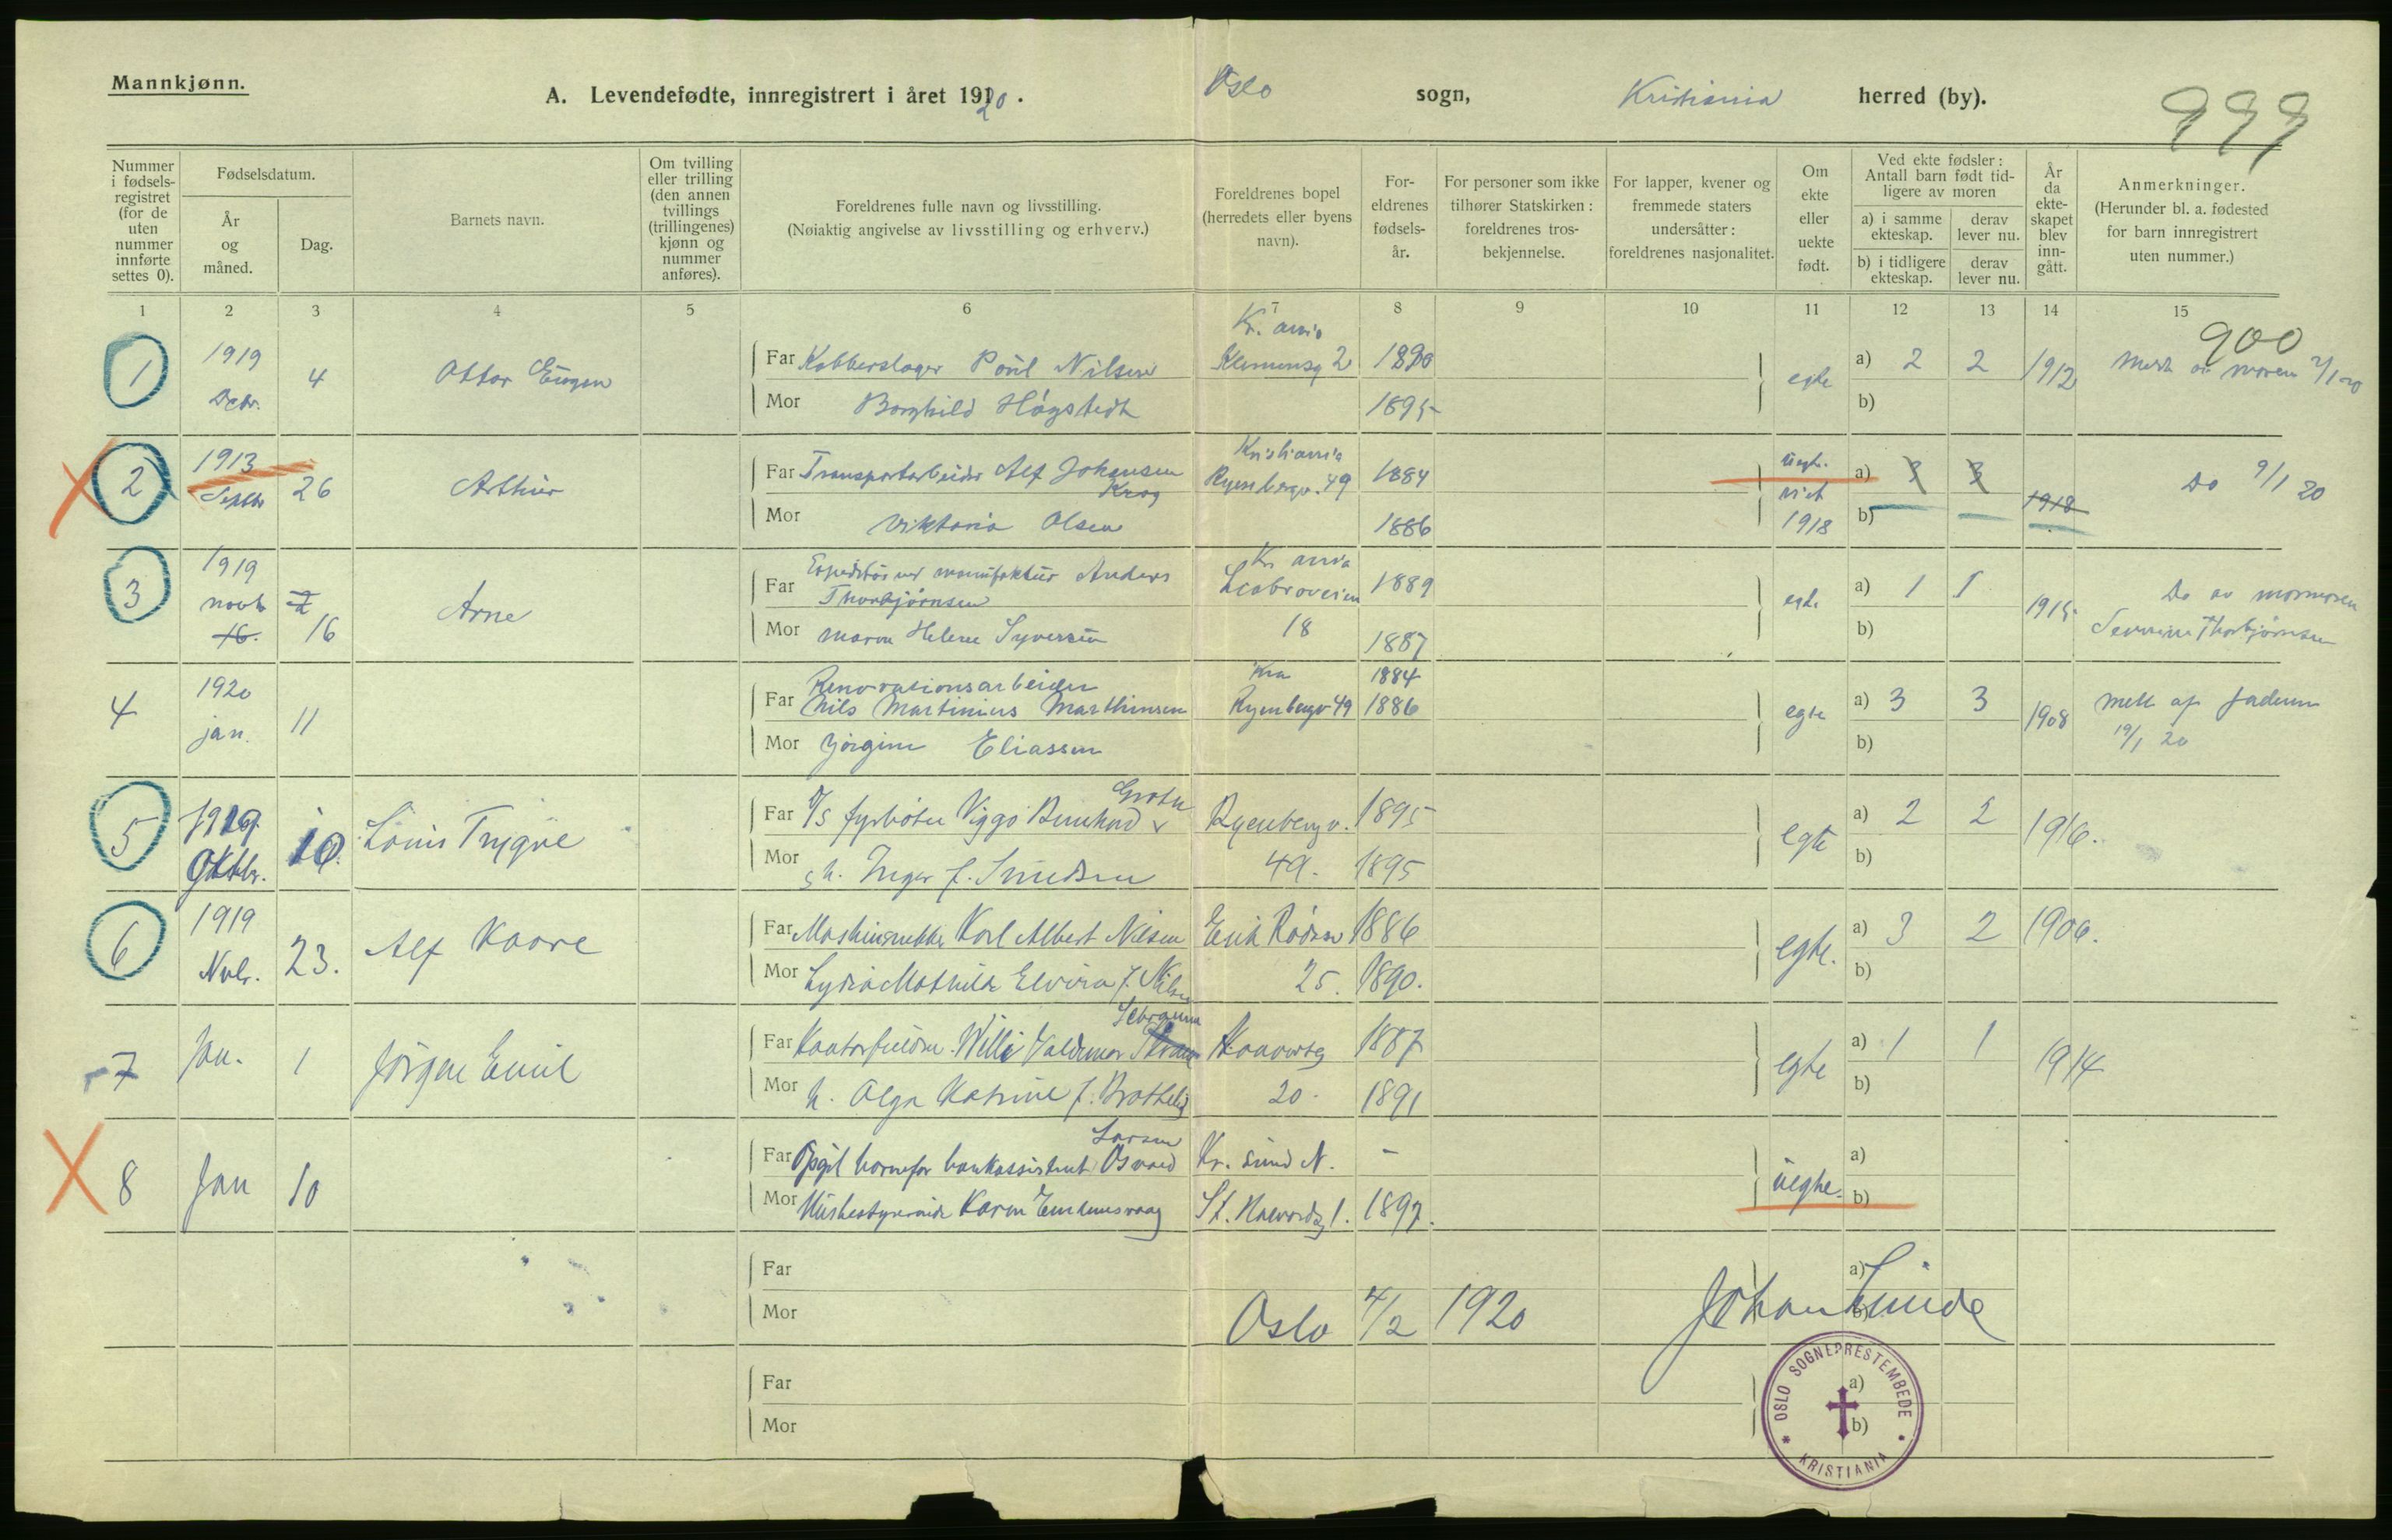 Mannkjønn.
A. Levendefødte, innregistrert i året 1920.
Oslo sogn, Kristiania herred (by).
999
Nummer i fødsels-registret (for de uten nummer innførte settes 0).
Fødselsdatum.
År og måned.
Dag.
Barnets navn.
Om tvilling eller trilling (den annen tvillings (trillingenes) kjønn og nummer anføres).
Foreldrenes fulle navn og livsstilling.
(Nøiaktig angivelse av livsstilling og erhverv.)
Foreldrenes bopel (herredets eller byens navn).
For-eldrenes fødsels-år.
For personer som ikke tilhører Statskirken: foreldrenes tros-bekjennelse.
For lapper, kvener og fremmede staters undersåtter: foreldrenes nasjonalitet.
Om ekte eller uekte født.
Ved ekte fødsler: Antall barn født tid-ligere av moren
a) i samme ekteskap. derav lever nu.
b) i tidligere ekteskap. derav lever nu.
År da ekte-skapet blev inn-gått.
Anmerkninger.
(Herunder bl. a. fødested for barn innregistrert uten nummer.)
1 2 3 4 5 6 7 8 9 10 11 12 13 14 15
900
1 1919 Decbr. 4 Ottar Eugen
Far Kobberslager Paul Nilsen Kr.ania Klemensg 2 1890 egte a) 2 2 1912 Meldt av moren 2/1 20
Mor Borghild Høgstedt 1895 b)
2 1913 Septbr 26 Arthur
Far Transportarbeider Alf Johansen Krog Kristiania Ryenbergv. 49 1884 uegte a) 3 3 1918 Do 9/1 20
Mor Viktoria Olsen 1886 viet 1918 b)
3 1919 novb 16. 7 16 Arne
Far Expeditør ved manufaktur Anders Thorbjørnsen Kr ania Leabroveien 18 1889 egte a) 1 1 1915 Do av mormoren
Mor Maren Helene Syversen 1887 b) Severine Thorbjørnsen
4 1920 jan. 11
Far Renovationsarbeider Nils Martinius Marthinsen Kra Ryenbergv 49 1884 1886 egte a) 3 3 1908 Meldt af faderen
Mor Jørgine Eliassen b) 19/1 20
5 1919. Oktbr. 10. Louis Trygve
Far D/S fyrbøter Viggo Bernhard Groth Ryenbergv. 1895 egte a) 2 2 1916.
Mor h. Inger f. Knudsen 49. 1895 b)
6 1919 Nvbr. 23. Alf Kaare
Far Maskinsnekker Karl Albert Nilsen 1886 egte. a) 3 2 1906.
Mor Lydia Mathilde Elvira f. Nilsen 25. 1890. b)
7 Jan. 1 Jørgen Emil
Far Willi Valdemar 1887 egte a) 1 1 1914
Mor h. Olga Katrine f. 20. 1891 b)
8 Jan 10
Far Opgit barnefar bankassistent Osvald Larsen Kr. sund N. – uegte. a)
Mor Husbestyrerinde Karen St. Halvardsg 1. 1897. b)
Far a)
Mor b)
Oslo 4/2 1920 Johan Lunde
Far a)
Mor b)
OSLO SOGNEPRESTEMBEDE * KRISTIANIA